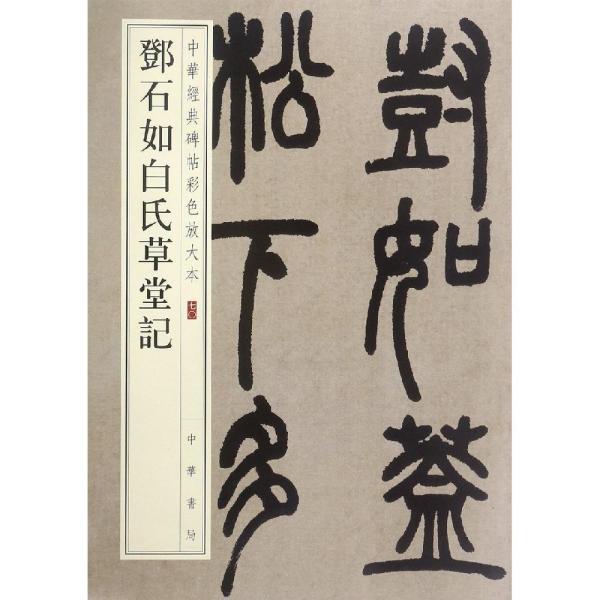 尌如蓋
松下多
中華經典碑帖彩色放大本 七〇
中華書局
鄧石如白氏草堂記